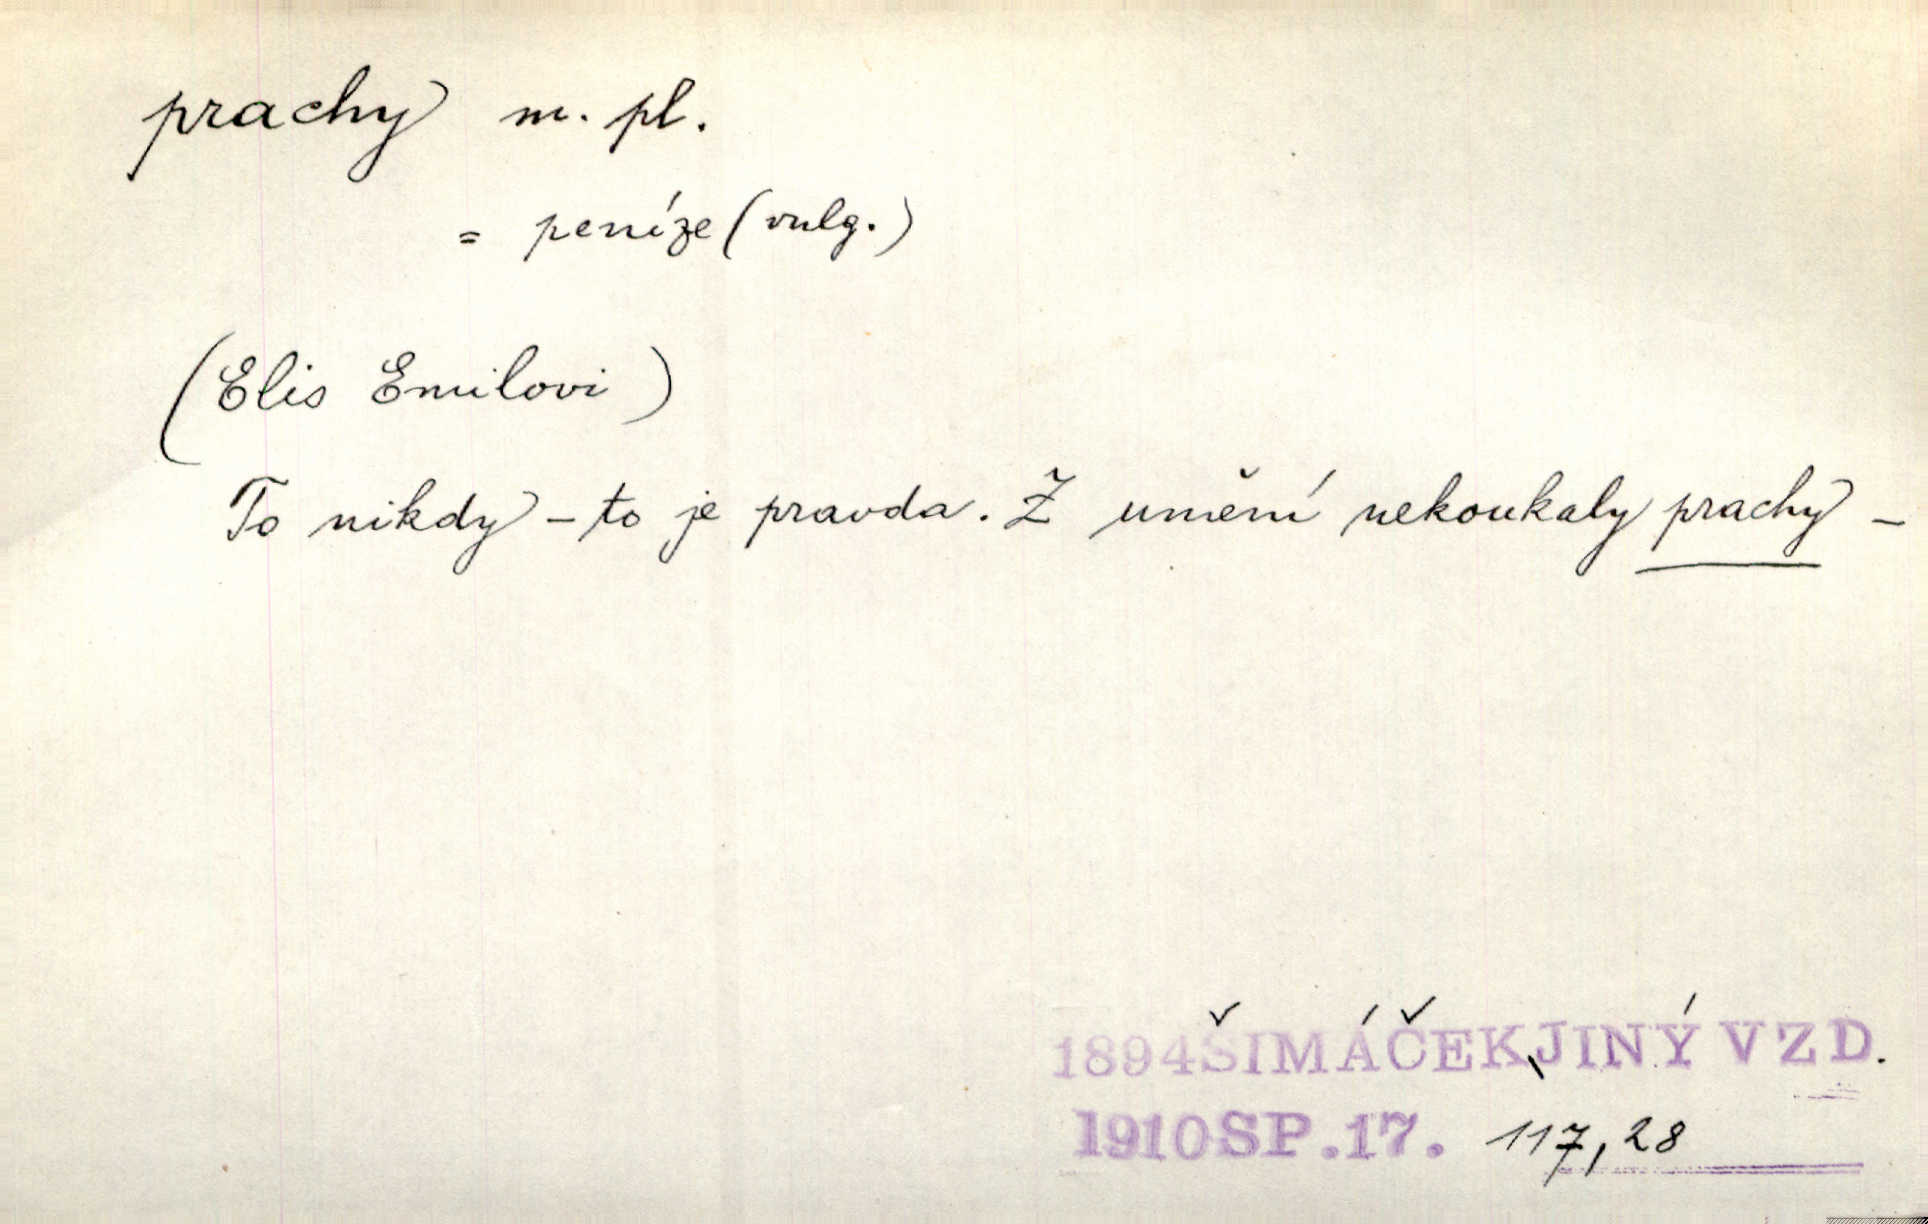 prachy m. pl.
= peníze (vulg.)
(Elis Emilovi)
To nikdy – to je pravda. Z umění nekoukaly prachy –
1894 ŠIMÁČEK, JINÝ VZD.
1910 SP. 17. 117, 28